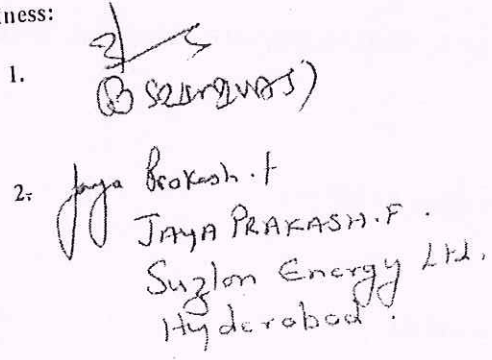 ness:
1.
2. Jaya Prakash . F
JAYA PRAKASH . F .
Suzlon Energy Ltd.
Hyderabad .